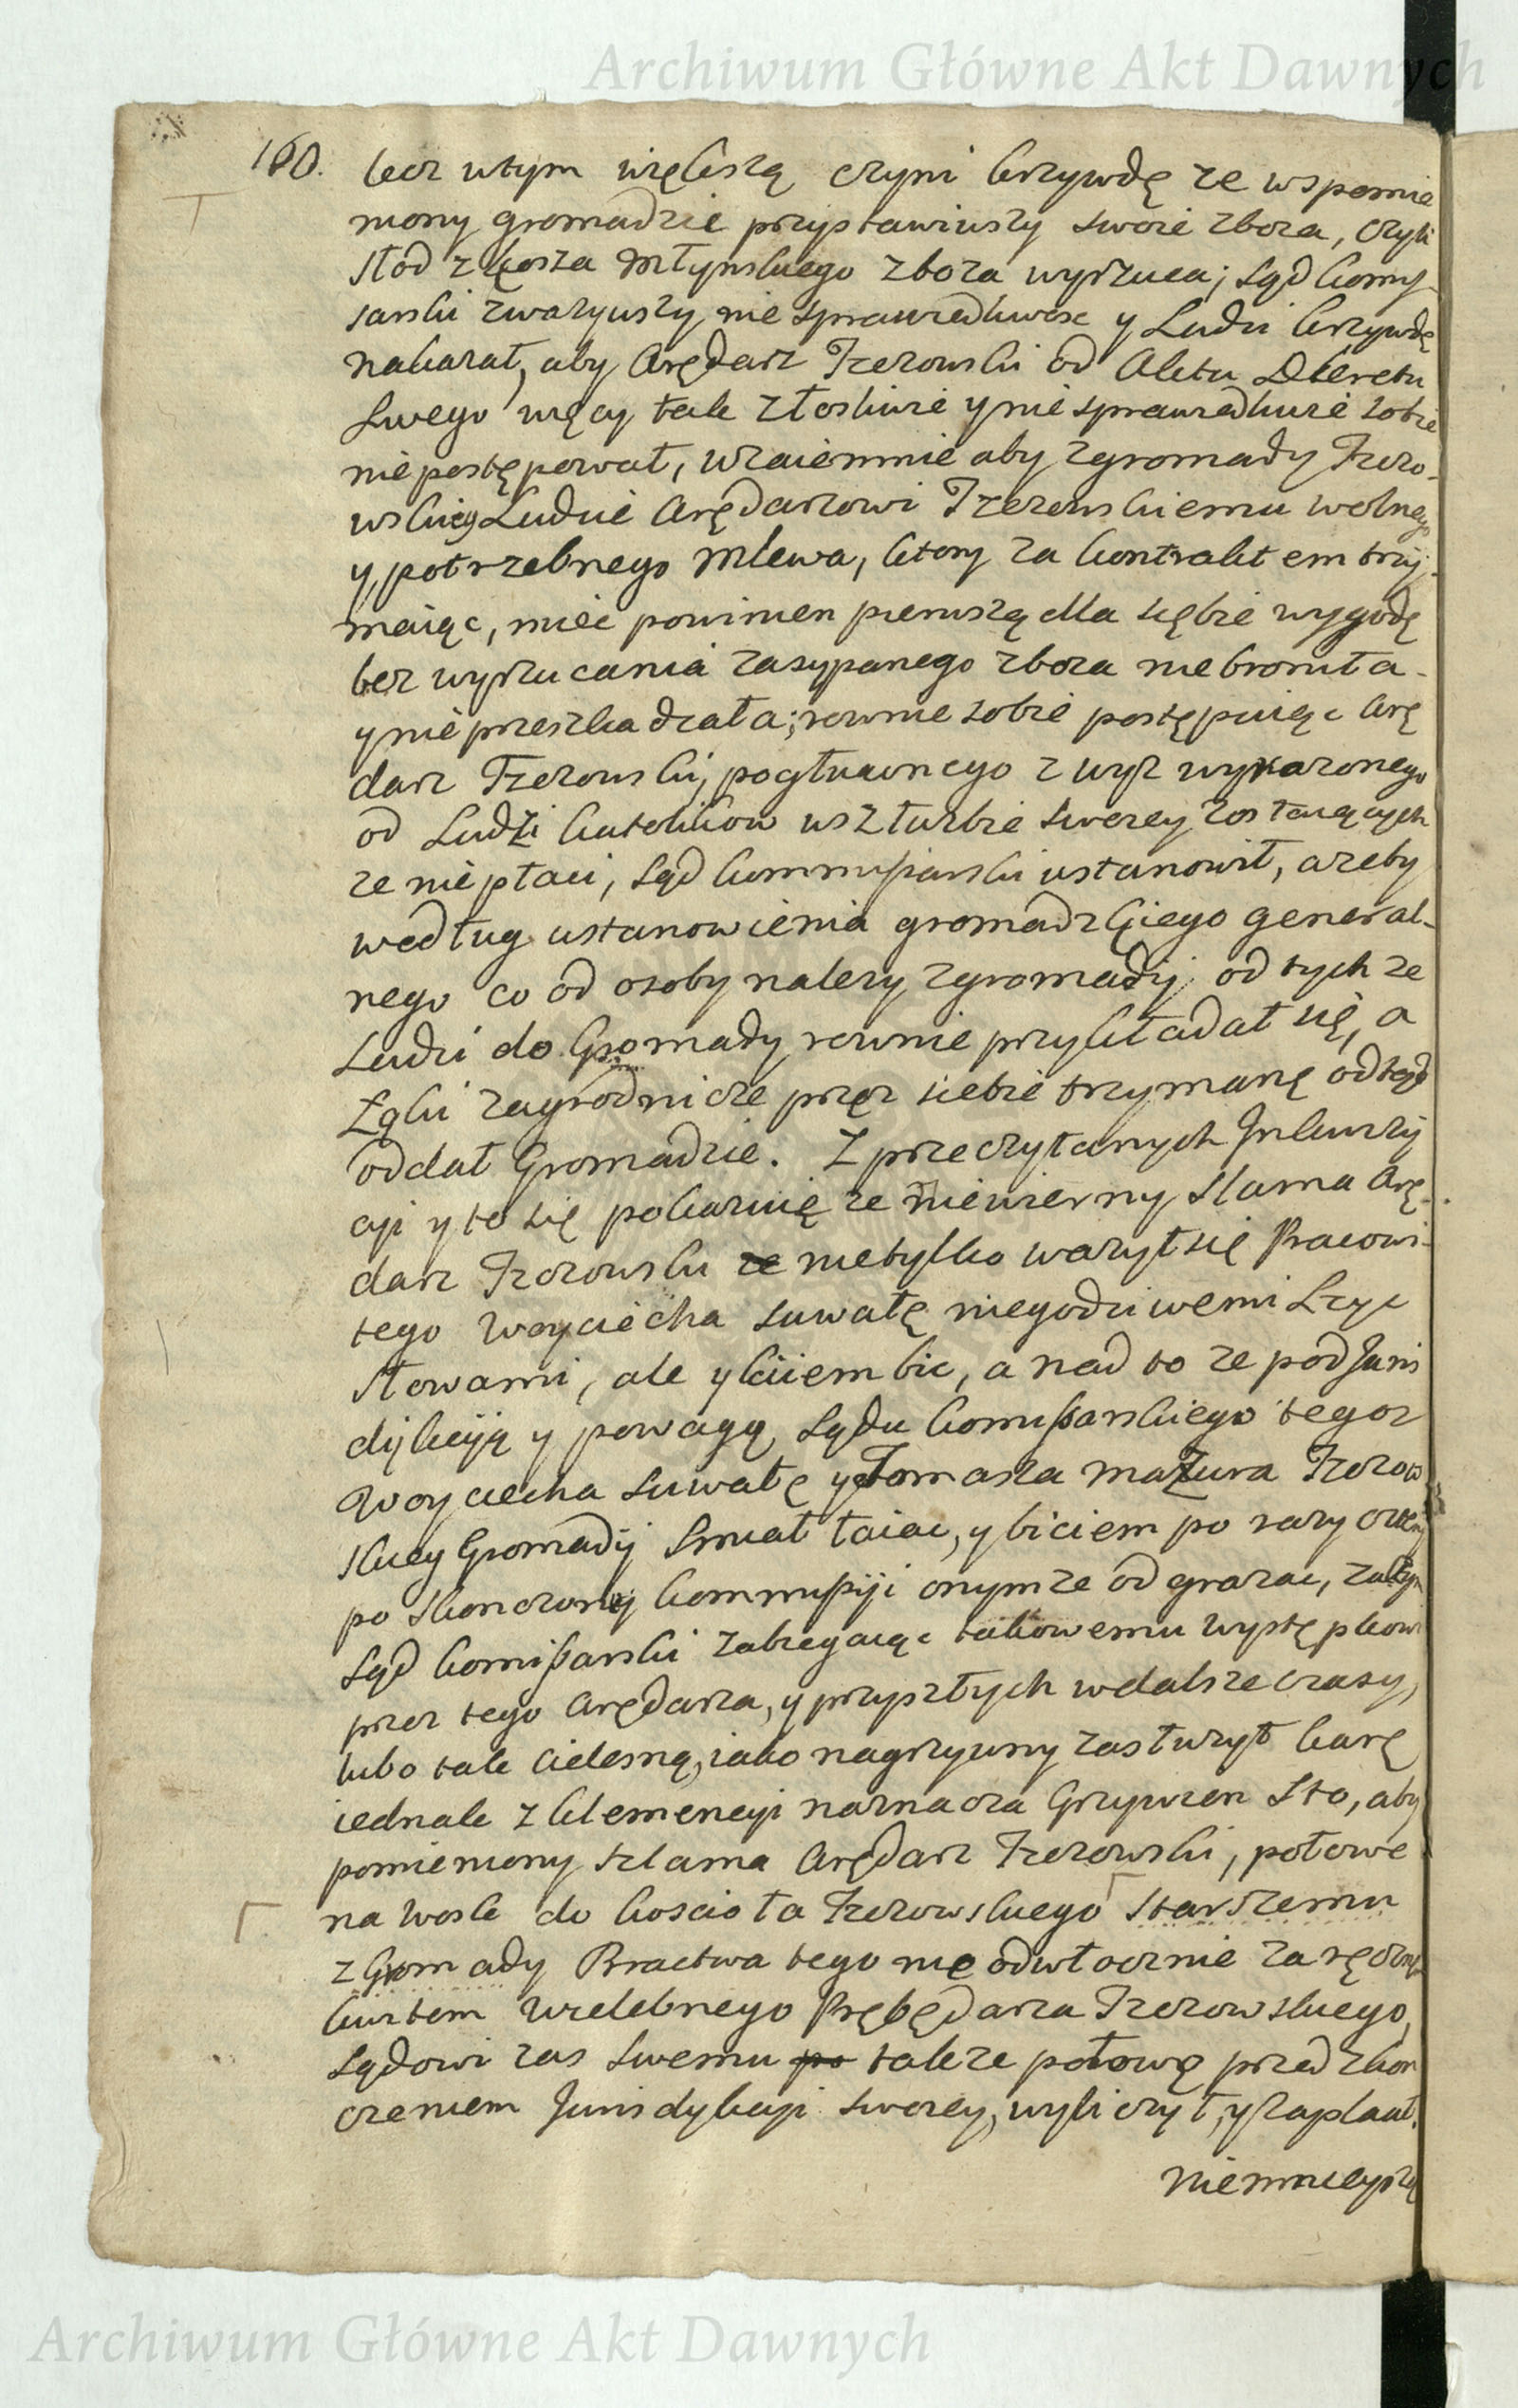 Archiwum Główne Akt Dawnych
160. lecz wtym większą czyni krzywdę ze wspomnie
niony gromadzie przystawiwszy swoie zboza, czyli
słod z kosza Młynskiego zboza wyrzuca; Sąd Kommy-
sarski zwazywszy nie sprawiedliwosc y Ludzi krzywdę
nakazał, aby Arędarz Jezowski od Aktu Dkretu
Swego węcy tak złosliwie y nie sprawiedliwie sobie
nie postępował, wzaiemnie aby zgromady Jezo-
wskiey Ludzie Arędarzowi Jezowskiemu wolnego
y potrzebnego Mlewa, ktory za kontraktem trzy-
maiąc, miec powinien pierwszą dla siębie wygodę
bez wyrzucania zasypanego zboza niebroniła
y nie przeszkadzała; rownie sobie postępuiąc Arę
darz Jezowski, pogłuwnego z wyz wyrazonego
od Ludzi katolikow wszłuzbie swoiey zostaiących
ze nie płaci, Sąd kommissarski ustanowił, azeby
według ustanowienia gromadzkiego general-
nego co od osoby nalezy zgromadÿ od tych ze
Ludzi do Gromady rownie przykładał się, a
Łąki zagrodnicze przez siebie trzymanę odtąd
oddał Gromadzie. Z przeczytanych Inkwizÿ
cyi y to się pokazuię ze niewierny Slama Arę-
darz Jezowski ze nietylko wazył się Pracowi-
tego Woyciecha Suwałę niegodziwemi Lzyc
słowami, ale y kiiem bic, a nad to ze pod Juris
dÿkcyją y powagą Sądu komissarskiego tegoz
Woyciecha Suwałę y Tomasza Mazura Jezow
skiey Gromadÿ Smiał łaiac, y biciem po razy
po skonczonÿ kommissÿi onymze odgrazac, zatÿm
Sąd komissarski zabiegaiąc takowemu występkowi
przez tego Arędarza, y przyszłych wdalsze czasy,
lubo tak cielesną, iako nagrzywny zasłuzył karę
iednak z klemencyi naznacza Grzywien Sto, aby
pomieniony szlama Arędarz Jezowski, połowe
na wosk do koscioła Jezowskiego Starszemu
z Gromady Bractwa tego nieodwłocznie zaręcznÿm
kwitem wielebnego Prębędarza Jezowskiego,
Sądowi zas swemu po takze połowę przed zkon
czeniem Jurisdykcyi swoiey, wyliczył, y zapłacił.
Niemnieyszą
Archiwum Główne Akt Dawnych